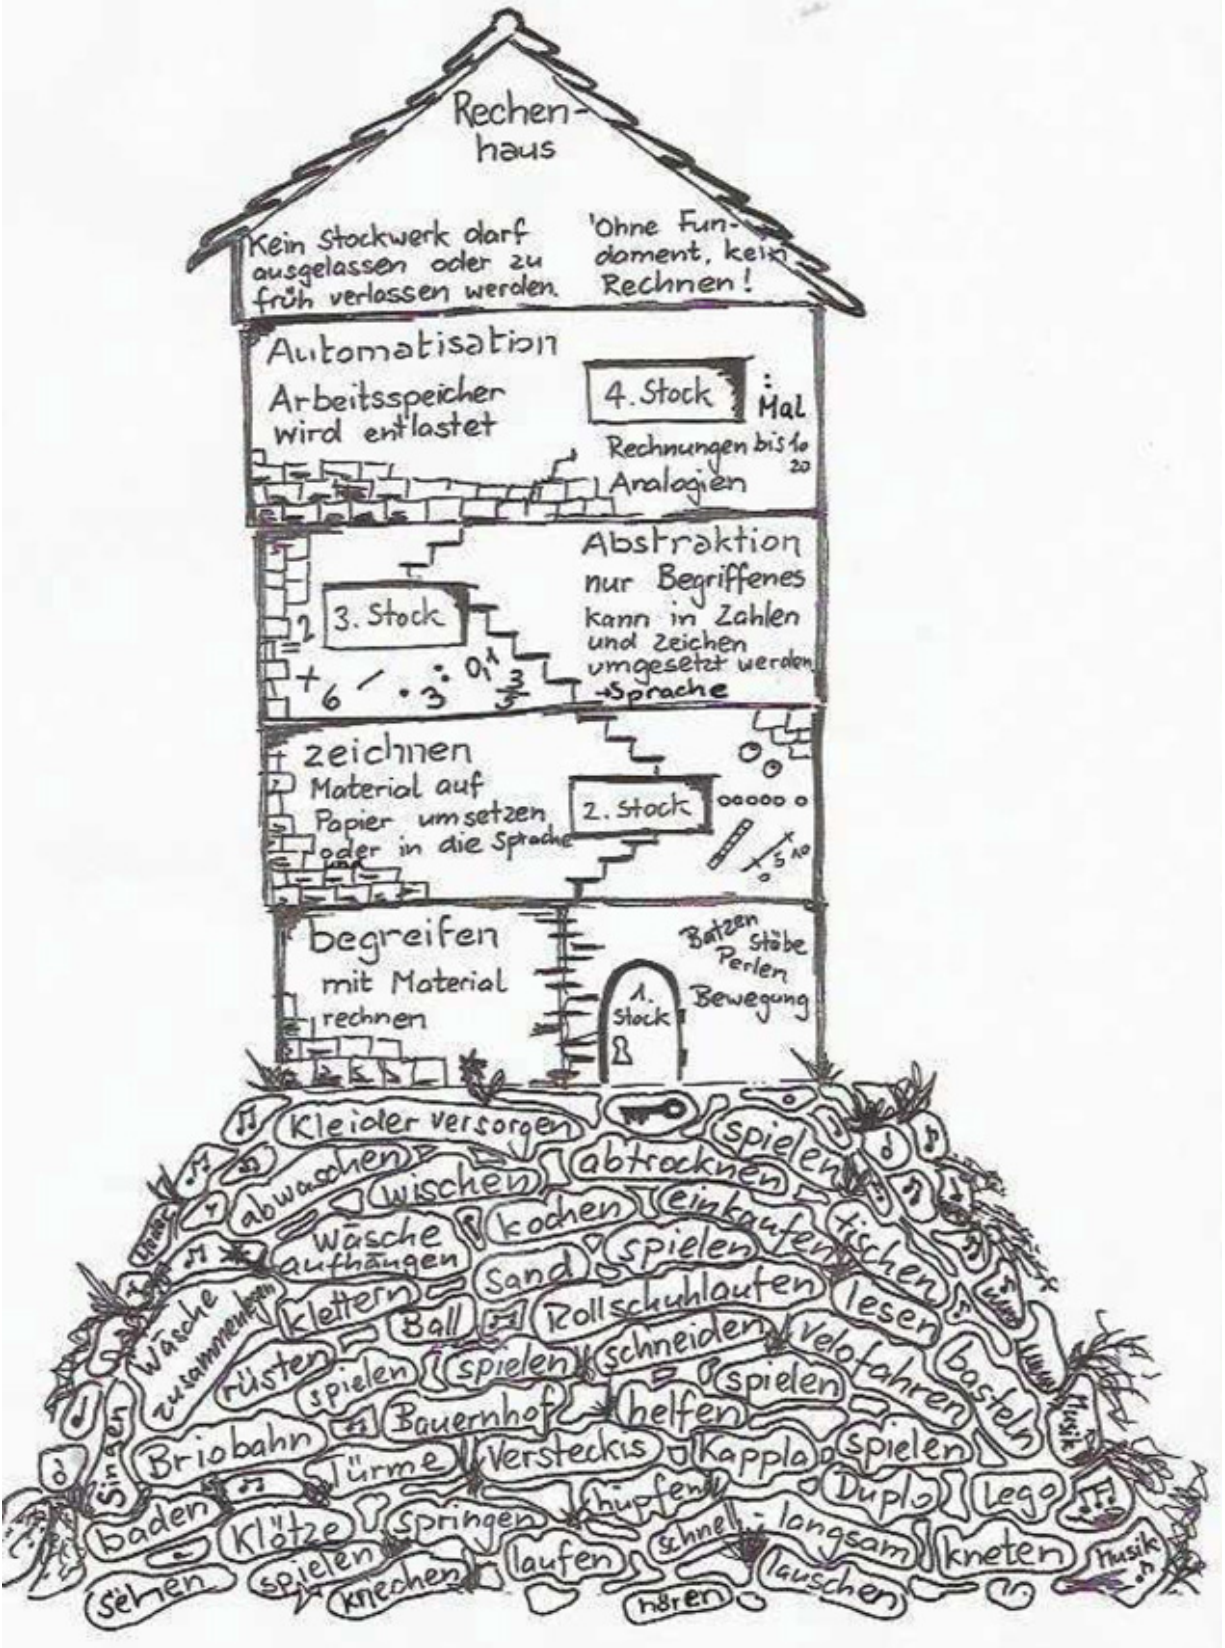 Rechen-
haus
Kein Stockwerk darf
ausgelassen oder zu
früh verlassen werden.
'Ohne Fun-
dament, kein
Rechnen!
Automatisation
Arbeitsspeicher
wird entlastet
4. Stock
:
Mal
Rechnungen bis 10
20
Analogien
3. Stock
= 2
+ 6 / · 3 : 0,1 3/5
Abstraktion
nur Begriffenes
kann in Zahlen
und Zeichen
umgesetzt werden
→ Sprache
zeichnen
Material auf
Papier umsetzen
oder in die Sprache
und
2. Stock
0 5 10
begreifen
mit Material
rechnen
1.
Stock
Batzen
Stäbe
Perlen
Bewegung
Kleider versorgen
spielen
abwaschen
wischen
abtrocknen
wäsche
aufhängen
kochen
einkaufen
tischen
Sand
spielen
wäsche
zusammenlegen
klettern
Ball
Rollschuhlaufen
lesen
rüsten
spielen
spielen
schneiden
spielen
Velofahren
basteln
Singen
Briobahn
Bauernhof
helfen
Musik
Türme
Versteckis
Kappla
spielen
baden
Klötze
springen
hüpfen
Duplo
Lego
sehen
spielen
kriechen
laufen
schnell - langsam
kneten
Musik
hören
lauschen